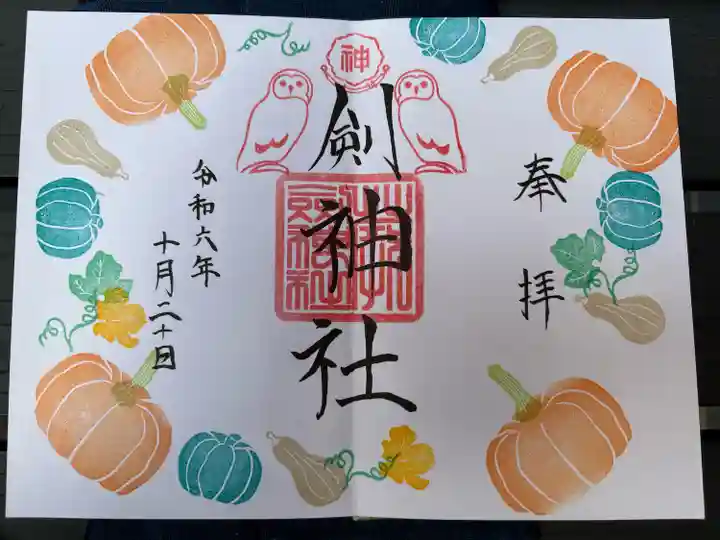 奉拝
神
剣神社
令和六年
十月二十日